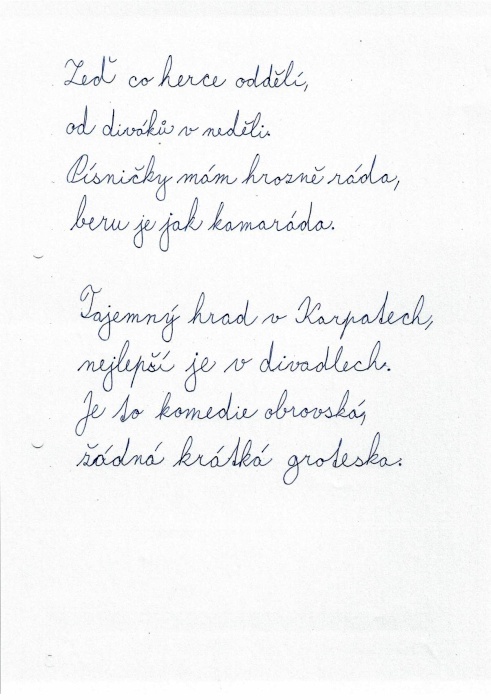 Zeď co herce oddělí,
od diváků v neděli.
Písničky mám hrozně ráda,
beru je jak kamaráda.
Tajemný hrad v Karpatech,
nejlepší je v divadlech.
Je to komedie obrovská,
žádná krátká groteska.